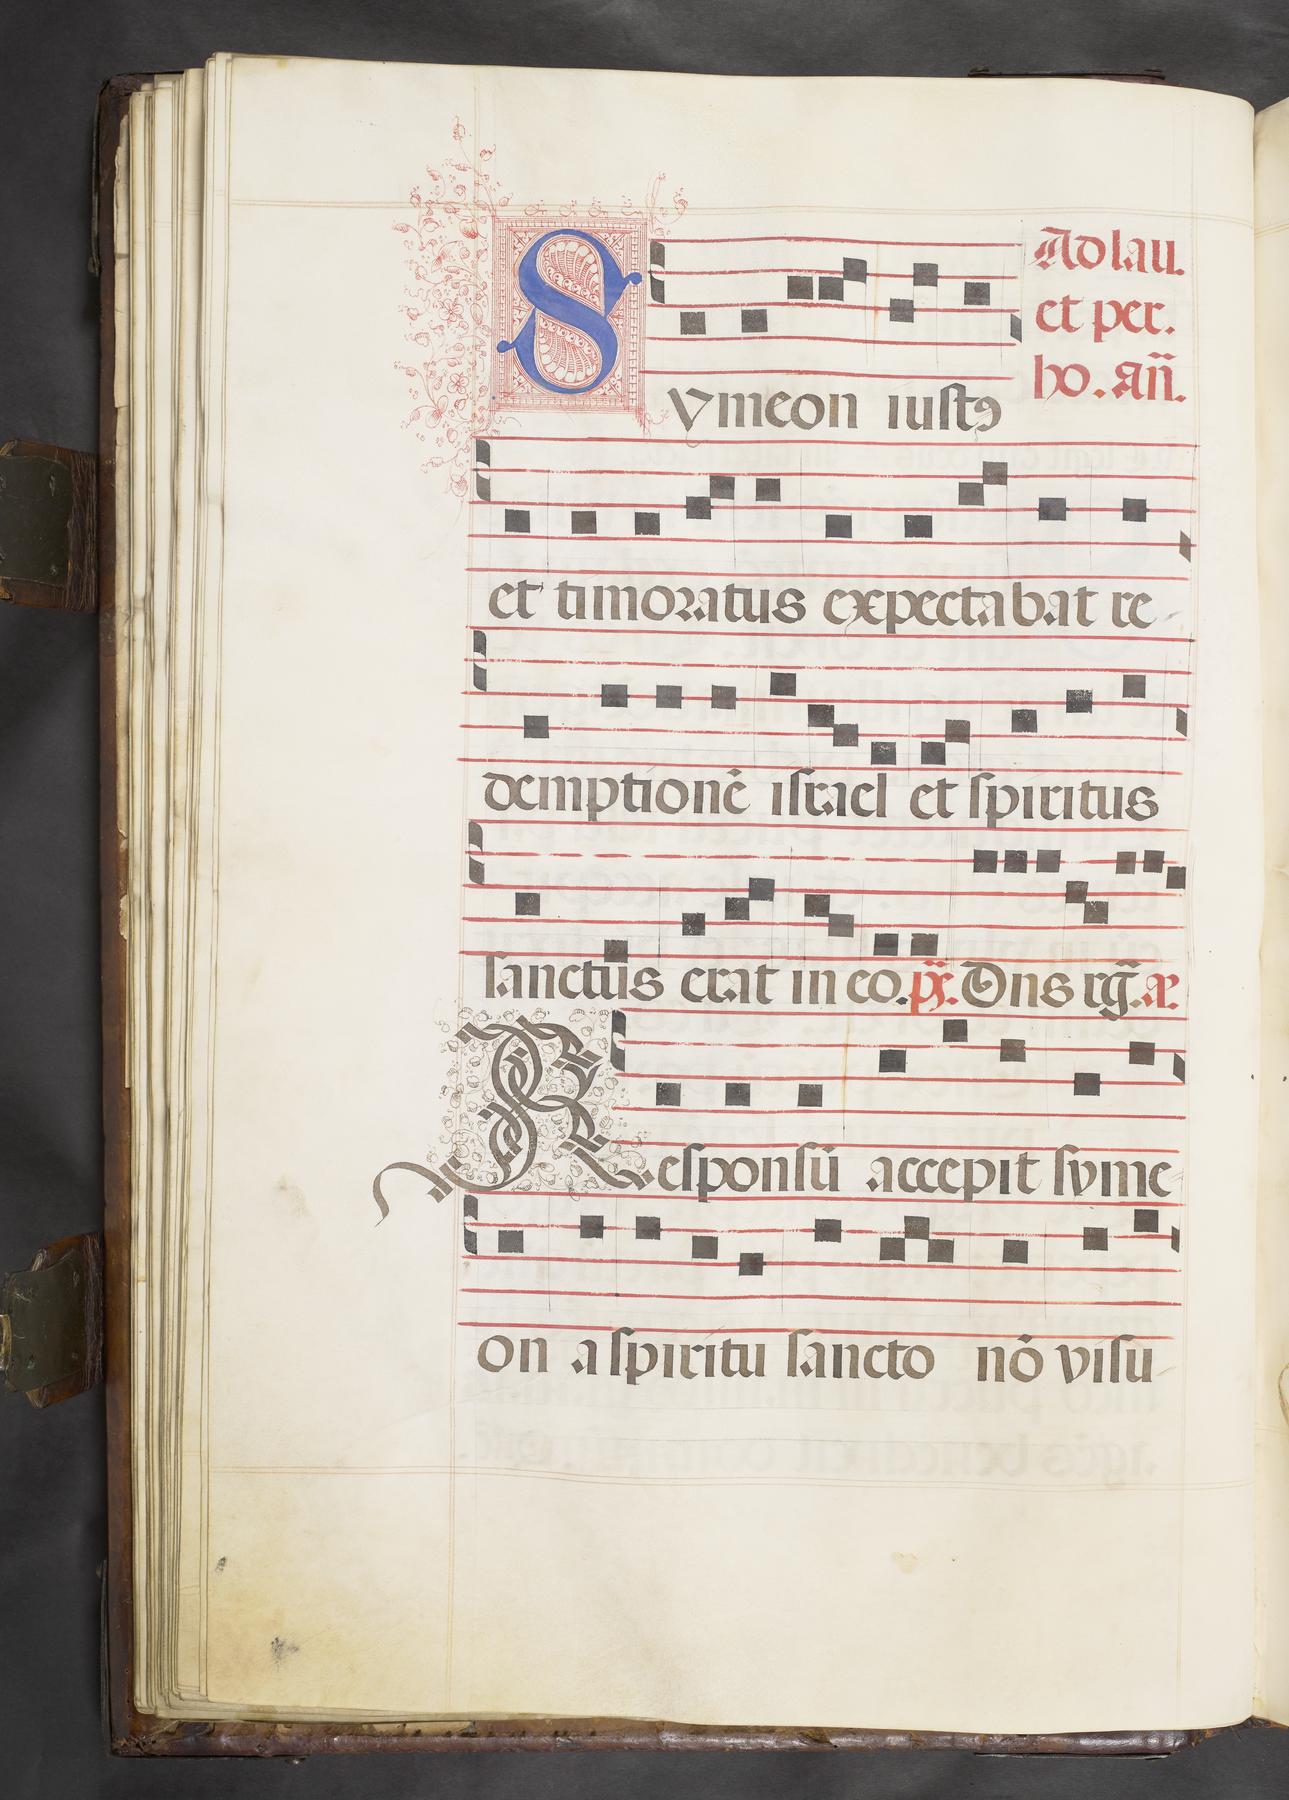 Symeon iustꝯ
Ad lau.
et per.
ho. an̄.
et timoratus expectabat re
demptionē israel et spiritus
sanctus erat in eo. ps̄. Dns rḡ. a͞.
Responsū accepit syme
on a spiritu sancto nō visu